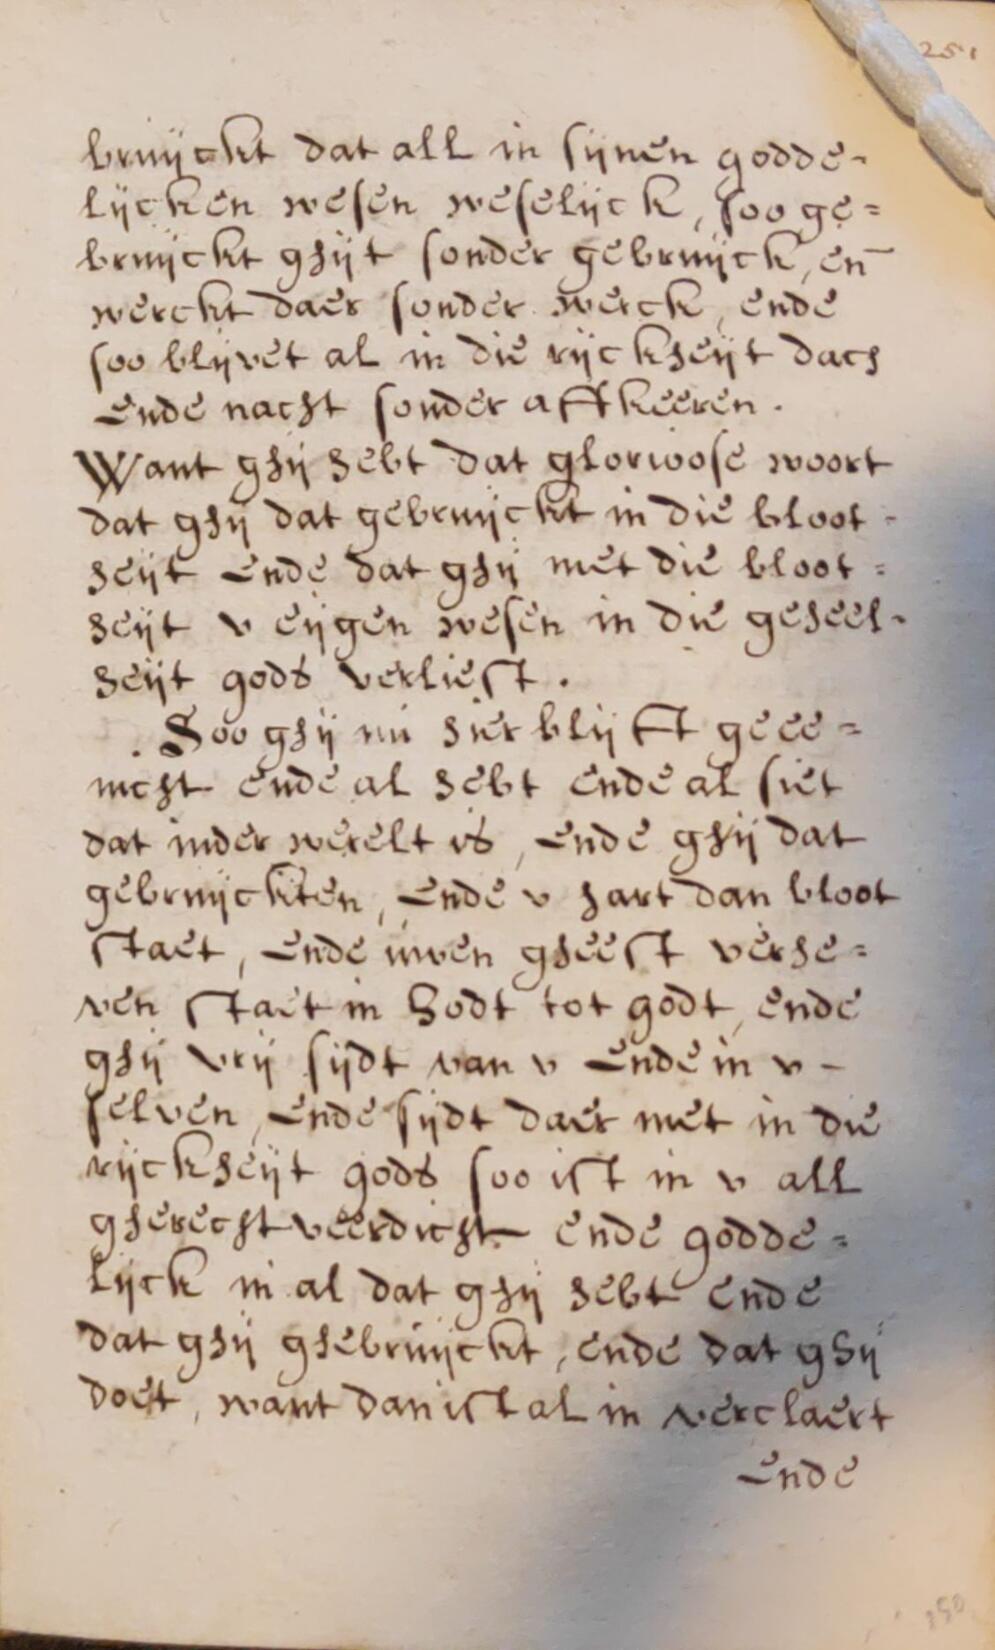 251
bruijckt dat all in sijnen godde-
lijcken wesen weselijck, soo ge=
bruijckt ghijt sonder gebruijck, en̄
werckt daer sonder werck, ende
soo blijvet al in die rijckheijt dach
ende nacht sonder affkeeren.
Want ghij hebt dat glorioose woort
dat ghij dat gebruijckt in die bloot-
heijt ende dat ghij met die bloot=
heijt v eijgen wesen in die geheel-
heijt gods verliest.
Soo ghij nu hier blijfft geee=
nicht ende al hebt ende al siet
dat inder werelt is, ende ghij dat
gebruijckten, ende v hart dan bloot
staet, ende uwen gheest verhe=
ven staet in Godt tot godt, ende
ghij vrij sijdt van v ende in v-
selven, ende sijdt daer met in die
rijckheijt gods soo ist in v all
gherechtveerdicht ende godde=
lijck in al dat ghij hebt ende
dat ghij ghebruijckt, ende dat ghij
doet, want dan ist al in verclaert
ende
350